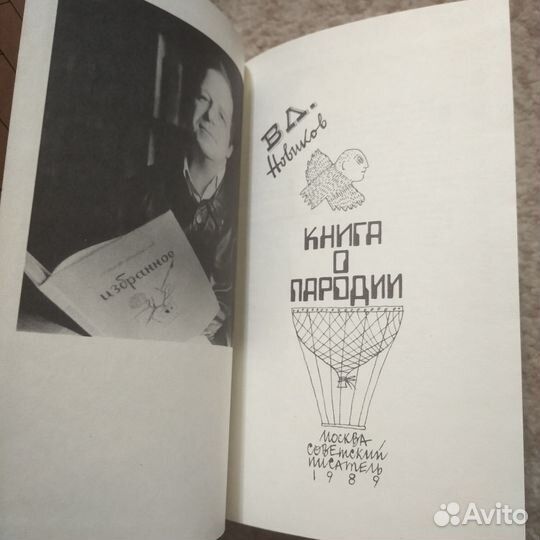 избранное
Вл.
Новиков
КНИГА
О
ПАРОДИИ
МОСКВА
СОВЕТСКИЙ
ПИСАТЕЛЬ
1989
Avito